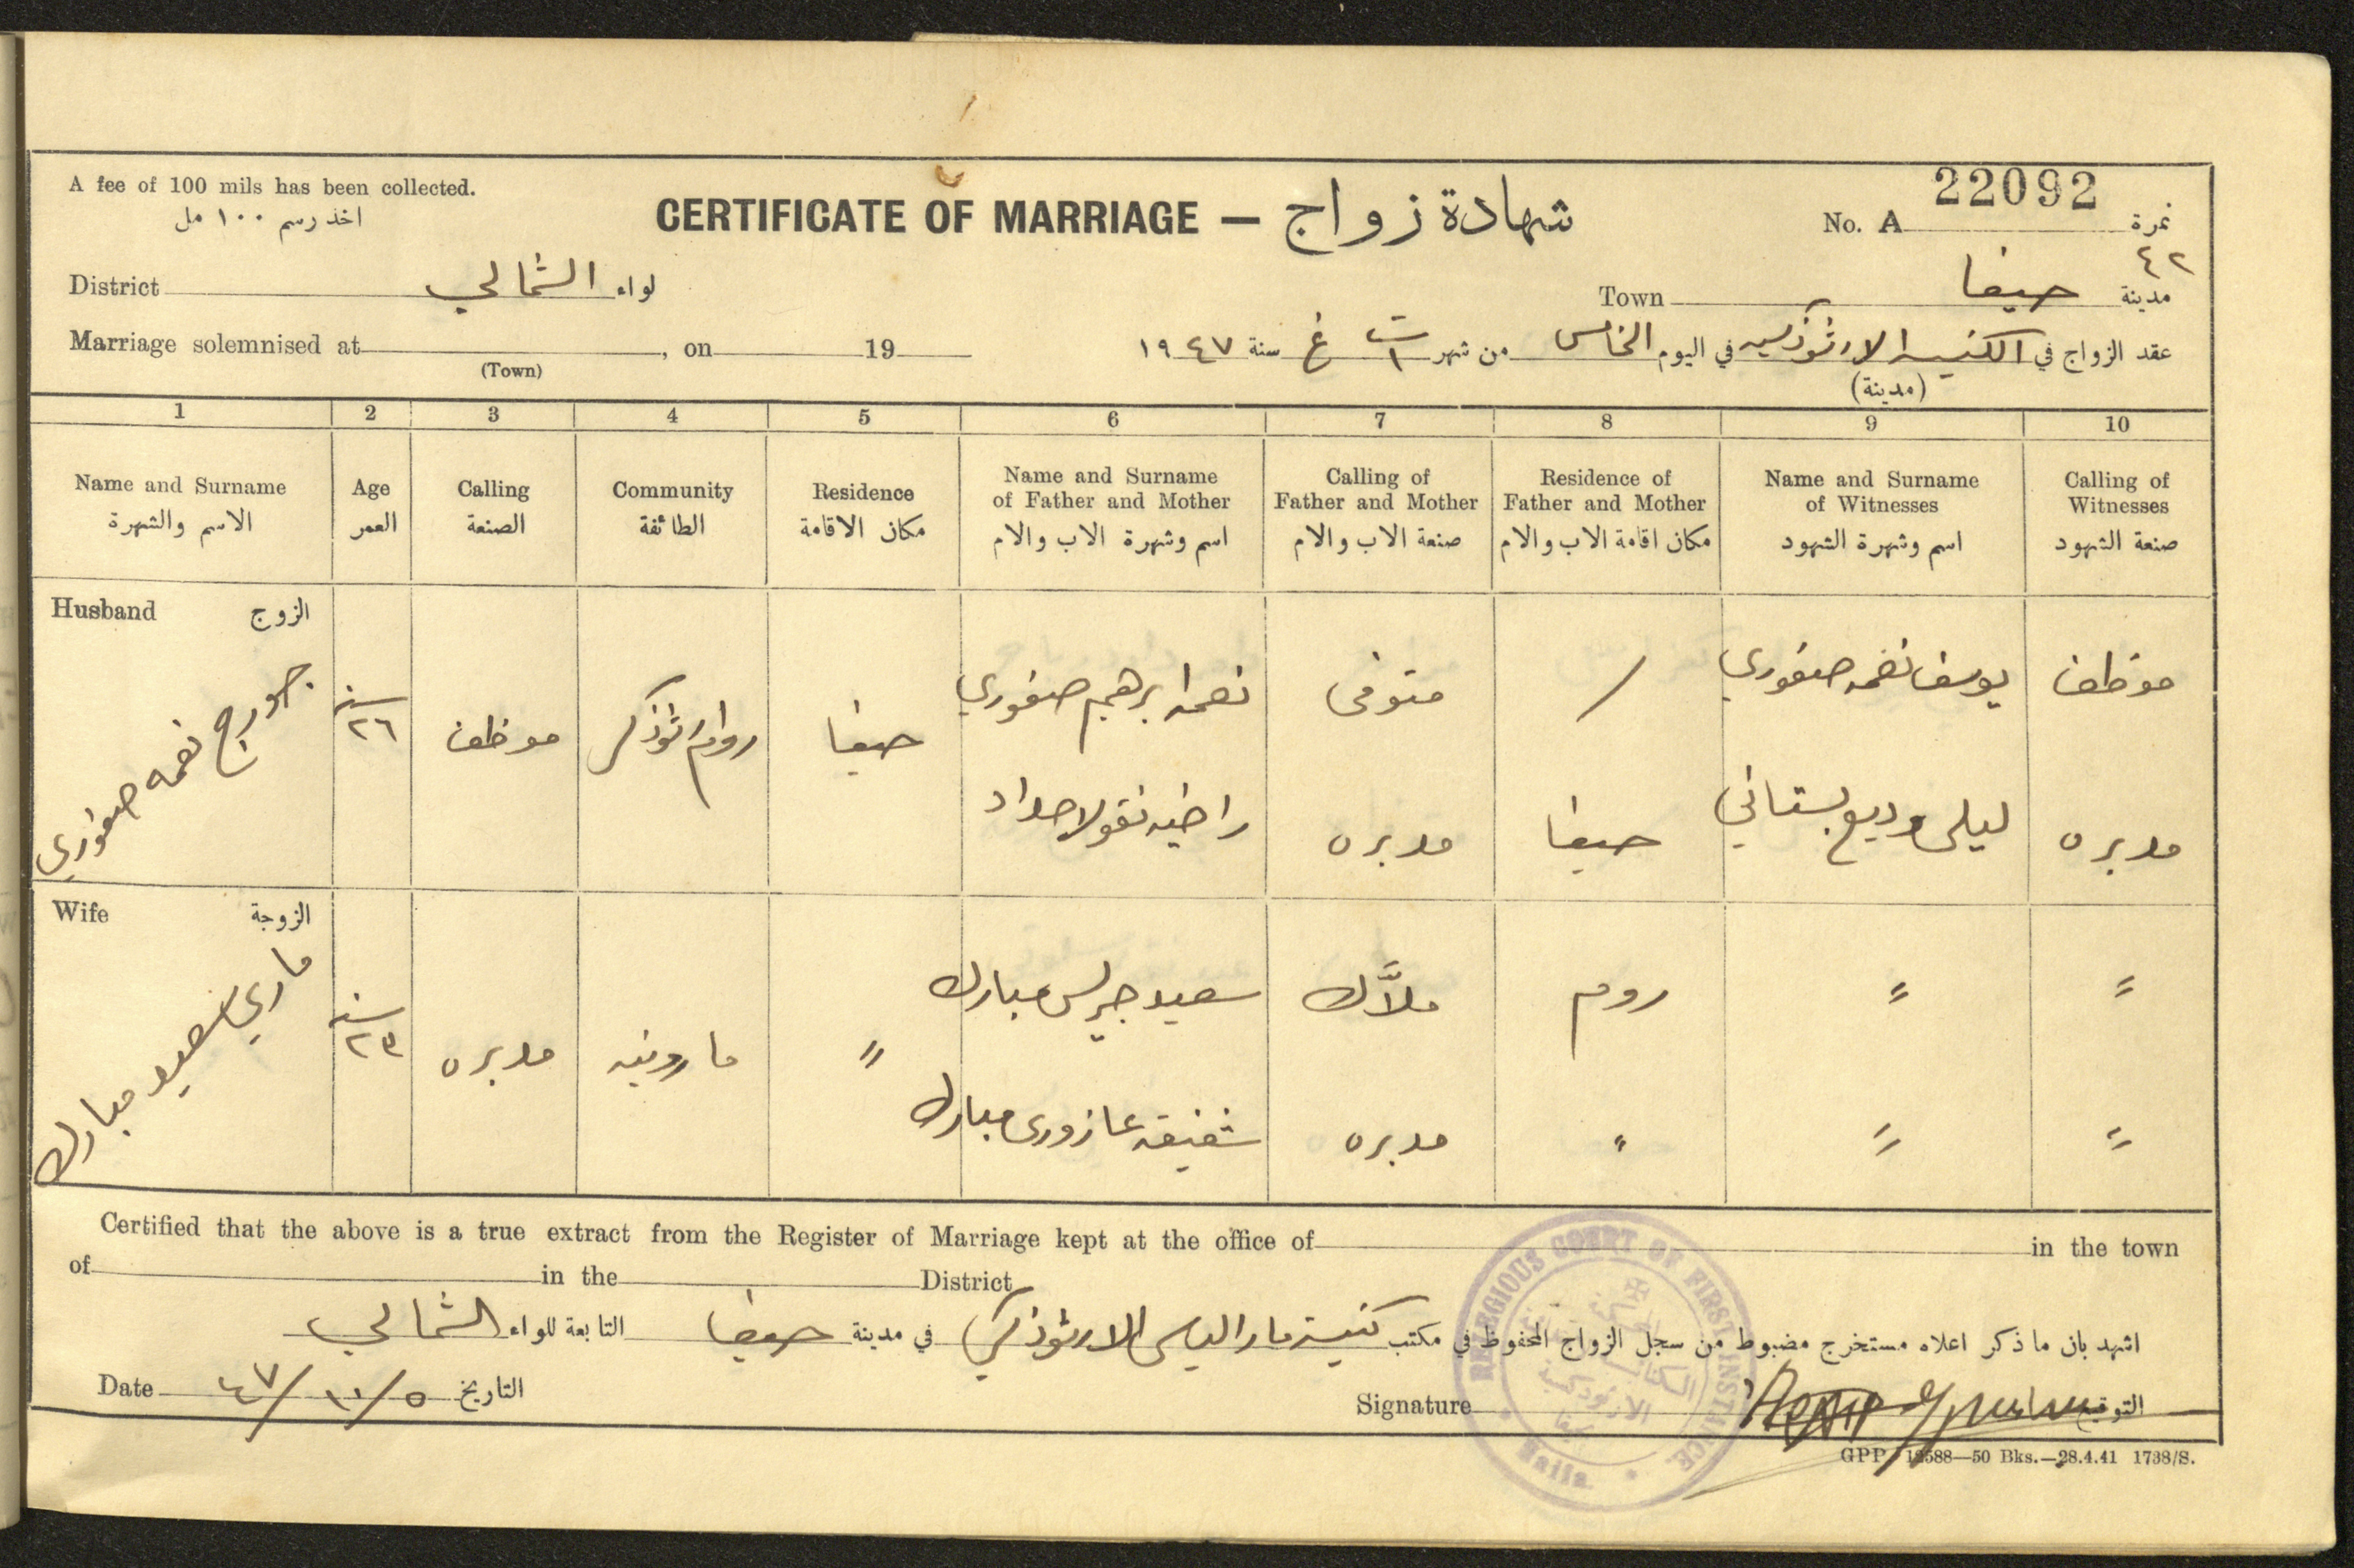 A fee of 100 mils has been collected.
اخذ رسم ١٠٠ مل
CERTIFICATE OF MARRIAGE — شهادة زواج
22092
No. A نمرة
٤٢
District الشمالي لواء
Town حيفا مدينة
Marriage solemnised at , on 19
(Town)
عقد الزواج في الكنيسه الارثوذكسيه في اليوم الخامس من شهر ت١ غ سنة ١٩٤٧
(مدينة)
1 2 3 4 5 6 7 8 9 10
Name and Surname
الاسم والشهرة
Age
العمر
Calling
الصنعة
Community
الطائفة
Residence
مكان الاقامة
Name and Surname
of Father and Mother
اسم وشهرة الاب والام
Calling of
Father and Mother
صنعة الاب والام
Residence of
Father and Mother
مكان اقامة الاب والام
Name and Surname
of Witnesses
اسم وشهرة الشهود
Calling of
Witnesses
صنعة الشهود
Husband الزوج
جورج نعمه صفوري
سنه ٢٦
موظف
روم ارثوذكس
حيفا
نعمه ابرهيم صفوري
راضيه نقولا حداد
متوفى
مدبره
/
حيفا
يوسف نعمه صفوري
ليلى وديع بستاني
موظف
مدبره
Wife الزوجة
ماري سعيد مبارك
سنه ٢٣
مدبره
مارونيه
"
سعيد جريس مبارك
شفيقه عازوري مبارك
ملاَّك
مدبره
روم
"
"
"
"
"
Certified that the above is a true extract from the Register of Marriage kept at the office of in the town
of in the District
اشهد بان ما ذكر اعلاه مستخرج مضبوط من سجل الزواج المحفوظ في مكتب كنيسة مار الياس الارثوذكسي في مدينة حيفا التابعة للواء الشمالي
Date ٤٧/١٠/٥ التاريخ
Signature التوقيع
RELEGIOUS COURT OF FIRST INSTANCE
Haifa
GPP 12588—50 Bks.—28.4.41 1738/S.